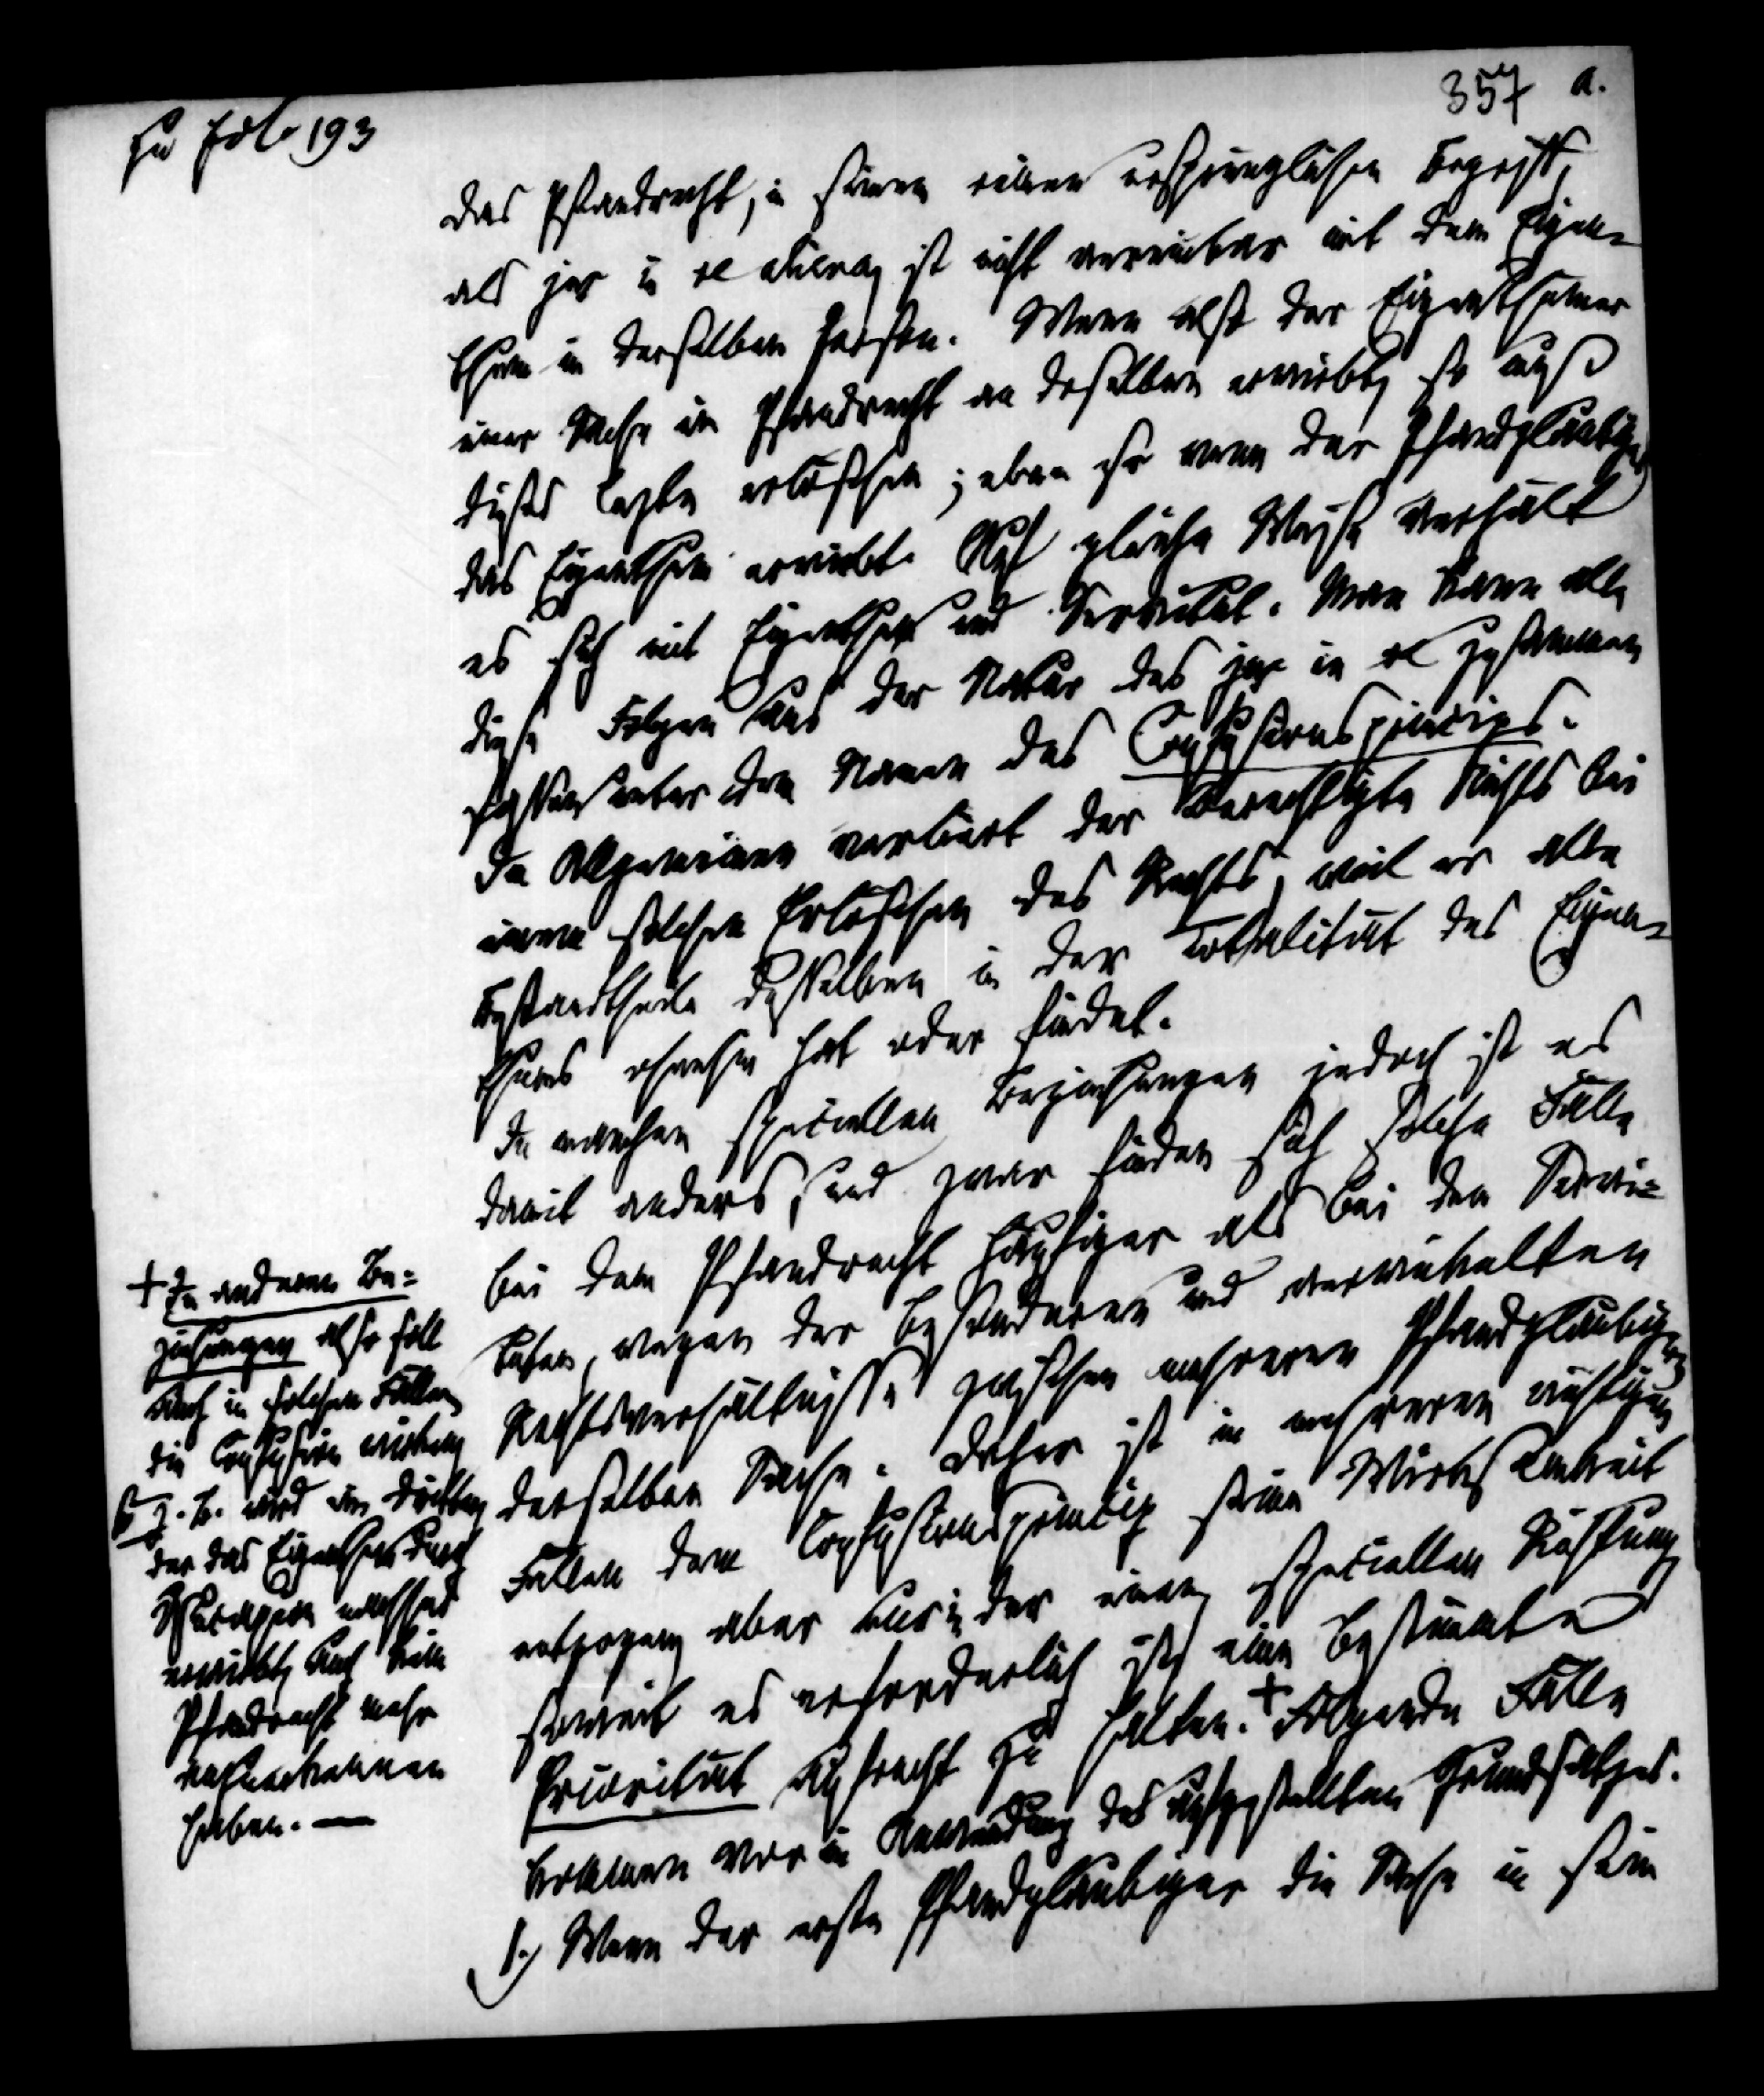 zu fol. 193
357 a.
Das Pfandrecht, in seinem reinen ursprünglichen Begriff,
als jus in re aliena, ist nicht vereinbar mit dem Eigen-
thum in derselben Person. Wenn also der Eigenthümer
einer Sache ein Pfandrecht an derselben erwirbt, so muß
dieses letzte erlöschen; eben so wenn der Pfandgläubiger
das Eigenthum erwirbt. Auf gleiche Weise verhält
es sich mit Eigenthum und Servitut. Man kann alle
diese Folgen aus der Natur des jus in re zusammen
fassen unter dem Namen des Confusionsprincips.
Im Allgemeinen verliert der Berechtigte Nichts bei
einem solchen Erlöschen des Rechts, weil er alle
Bestandtheile desselben in der Totalität des Eigen-
thums ohnehin hat oder findet.
In manchen speciellen Beziehungen jedoch ist es
damit anders, und zwar finden sich solche Fälle
bei dem Pfandrecht häufiger als bei den Servi-
tuten, wegen der besonderen und verwickelten
Rechtsverhältnisse zwischen mehreren Pfandgläubigern
derselben Sache. Daher ist in mehreren wichtigen
Fällen dem Confusionsprincip seine Wirksamkeit
entzogen, aber nur in der einen speciellen Richtung
soweit es erforderlich ist, eine bestimmte
Priorität aufrecht zu halten.+ Folgende Fälle
kommen vor in Anwendung des aufgestellten Grundsatzes.
1.) Wenn der erste Pfandgläubiger die Sache in sein
+ In anderen Be-
ziehungen also soll
auch in solchen Fällen
die Confusion wirken
So z. B. wird ein Dritter
der das Eigenthum durch
Usucapion
erwirbt, auch kein
Pfandrecht mehr
anzuerkennen
haben. —